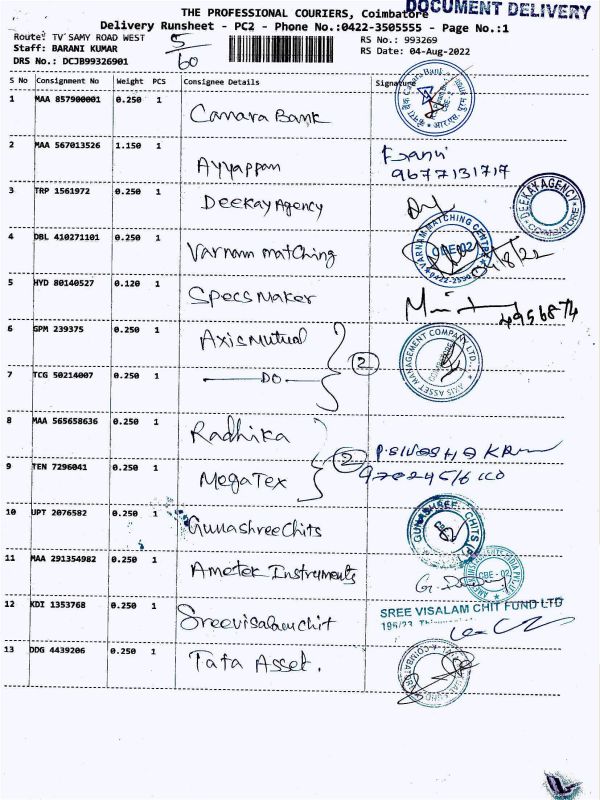 THE PROFESSIONAL COURIERS, Coimbatore
DOCUMENT DELIVERY
Delivery Runsheet - PC2 - Phone No.:0422-3505555 - Page No.:1
Route: TV SAMY ROAD WEST
5/60
RS No.: 993269
Staff: BARANI KUMAR
RS Date: 04-Aug-2022
DRS No.: DCJB99326901
S No Consignment No Weight PCS Consignee Details Signature
1 MAA 857900001 0.250 1 Canara Bank
Canara Bank
2 MAA 567013526 1.150 1 Ayyappan
9677131717
3 TRP 1561972 0.250 1 Deekay Agency
DEEKAY AGENCY
COIMBATORE
4 DBL 410271101 0.250 1 Varnam matching
VARNAM MATCHING CENTRE
CBE-02
0422-2550
04/8/22
5 HYD 80140527 0.120 1 Specs Maker
4956874
6 GPM 239375 0.250 1 Axis Mutual
2
AXIS ASSET MANAGEMENT COMPANY LTD.
7 TCG 50214007 0.250 1 DO
8 MAA 565658636 0.250 1 Radhika
2
9 TEN 7296041 0.250 1 Mega Tex
10 UPT 2076582 0.250 1 Gunashree Chits
GUNASHREE CHITS (P)
11 MAA 291354982 0.250 1 Ametek Instruments
CBE-02
12 KDI 1353768 0.250 1 Sreevisalam chit
SREE VISALAM CHIT FUND LTD
13 DDG 4439206 0.250 1 Tata Asset.